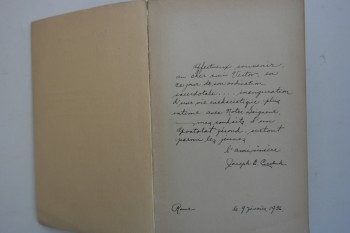 Affectueux souvenir,
à cher ami Victor, en
ce jour de son ordination
sacerdotale.... inauguration
d'une vie eucharistique plus
intime avec Notre Seigneur
mes souhaits d'un
apostolat fécond, surtout
parmi les jeunes
L'ami sincère
Joseph
Rome le 9 février 19